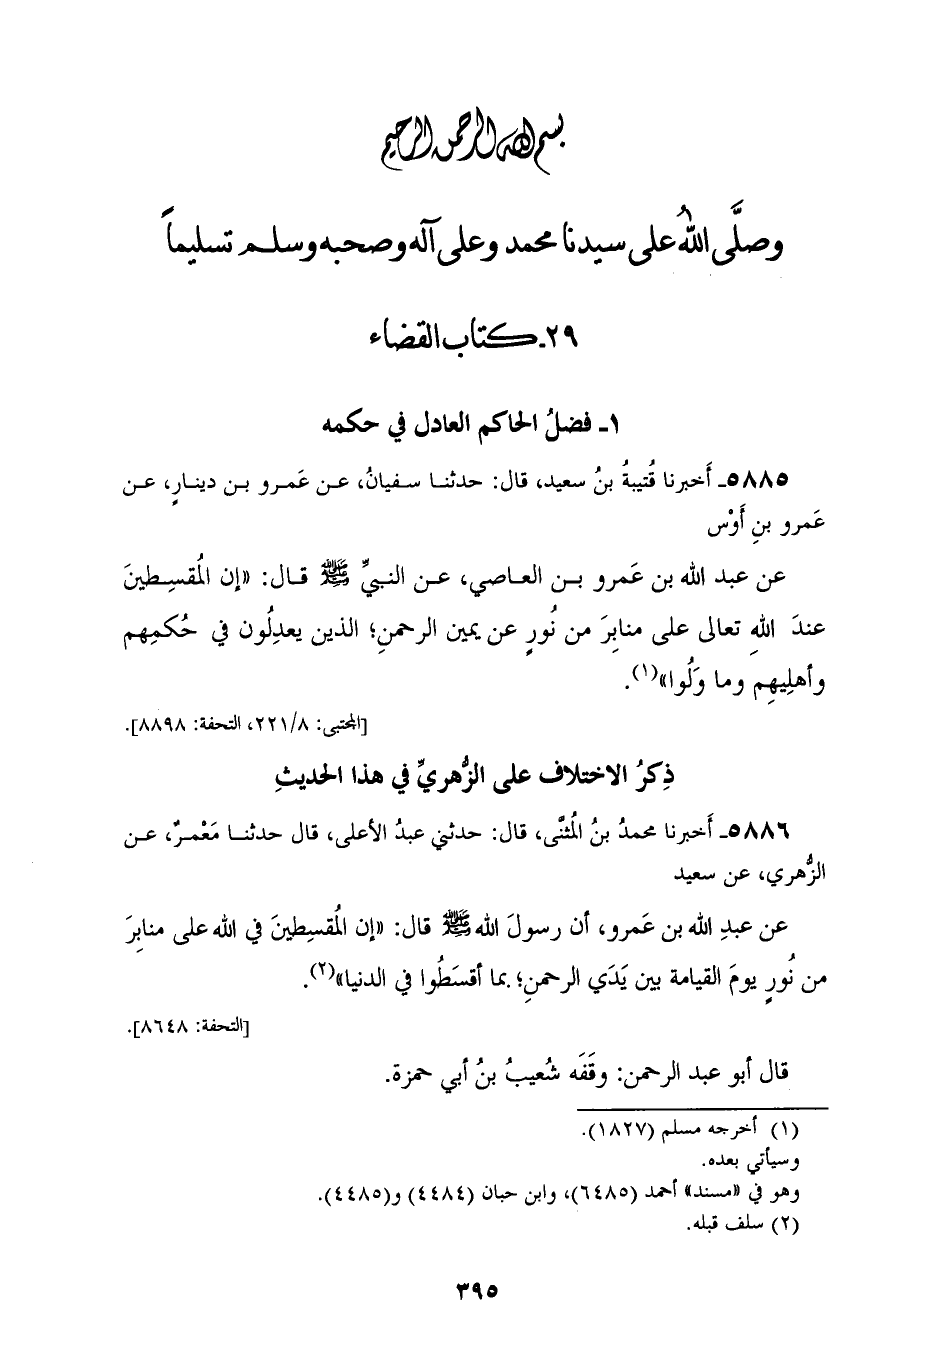 بسم الله الرحمن الرحيم
وصلَّى اللهُ على سيدنا محمد وعلى آله وصحبه وسلم تسليماً
٢٩ـ كتاب القضاء
١ـ فضلُ الحاكم العادل في حكمه
٥٨٨٥ـ أَخبرنا قُتيبةُ بنُ سعيد، قال: حدثنا سفيانُ، عن عَمرو بن دينارٍ، عن
عَمرو بنِ أَوْس
عن عبد الله بن عَمرو بن العاصي، عن النبيِّ ﷺ قال: «إن المُقسِطينَ
عندَ اللهِ تعالى على منابِرَ من نُورٍ عن يمين الرحمنِ؛ الذين يعدِلُون في حُكمِهم
وأهلِيهِم وما وَلُوا»(١).
[المجتبى: ٢٢١/٨، التحفة: ٨٨٩٨].
ذِكرُ الاختلاف على الزُّهريِّ في هذا الحديثِ
٥٨٨٦ـ أَخبرنا محمدُ بنُ المُثنَّى، قال: حدثني عبدُ الأعلى، قال حدثنا مَعْمرٌ، عن
الزُّهري، عن سعيد
عن عبدِ الله بن عَمرو، أن رسولَ الله ﷺ قال: «إن المُقسِطينَ في الله على منابِرَ
من نُورٍ يومَ القيامة بين يَدَي الرحمنِ؛ بما أقسَطُوا في الدنيا»(٢).
[التحفة: ٨٦٤٨].
قال أبو عبد الرحمن: وقَفَه شُعيبُ بنُ أبي حمزة.
(١) أخرجه مسلم (١٨٢٧).
وسيأتي بعده.
وهو في «مسند» أحمد (٦٤٨٥)، وابن حبان (٤٤٨٤) و(٤٤٨٥).
(٢) سلف قبله.
٣٩٥